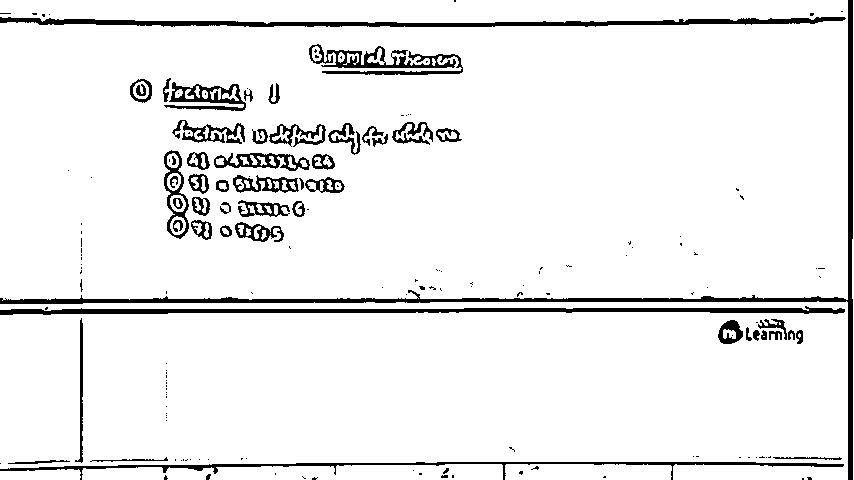 Binomial Theorem
① factorial: !
factorial is defined only for whole no.
① 4! = 4x3x2x1 = 24
② 5! = 5x4x3x2x1 = 120
3! = 3x2x1 = 6
④ 7! = 7x6x5
Learning